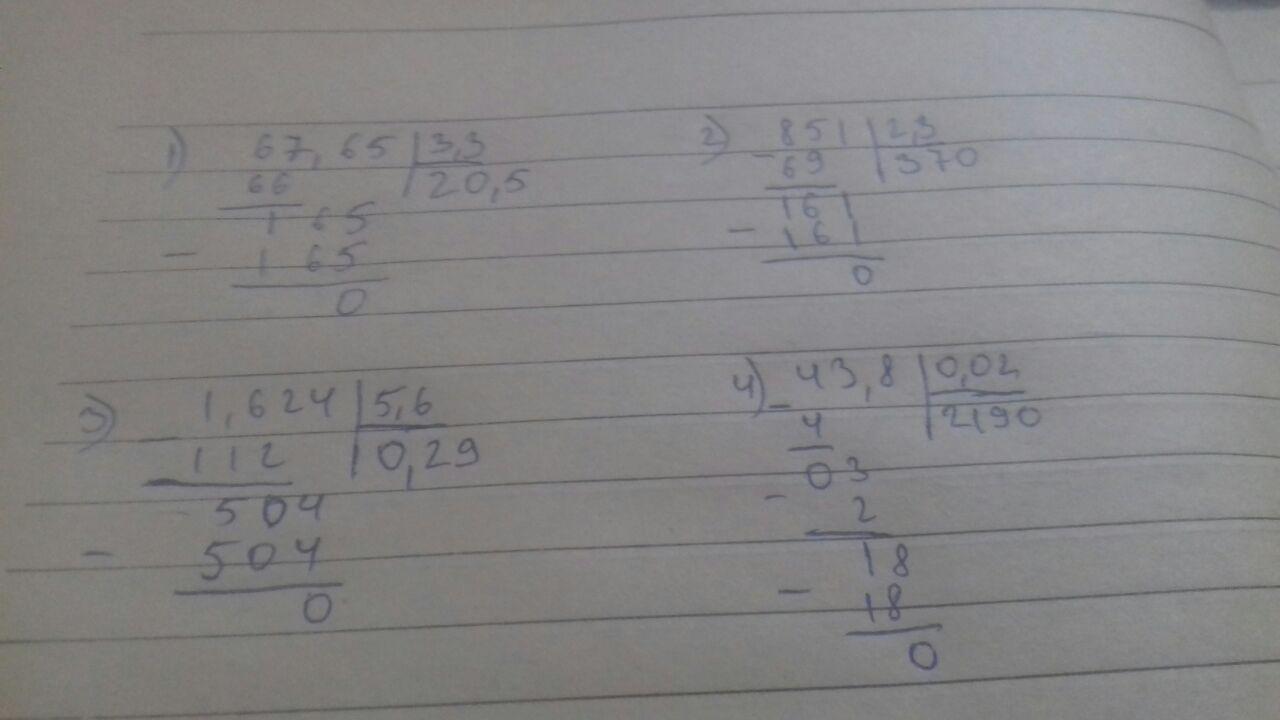 1) 67,65 | 3,3
66 | 20,5
165
- 165
0
2) 851 | 2,3
- 69 | 370
161
- 161
0
3) 1,624 | 5,6
- 112 | 0,29
504
- 504
0
4) 43,8 | 0,02
- 4 | 2190
03
- 2
18
- 18
0